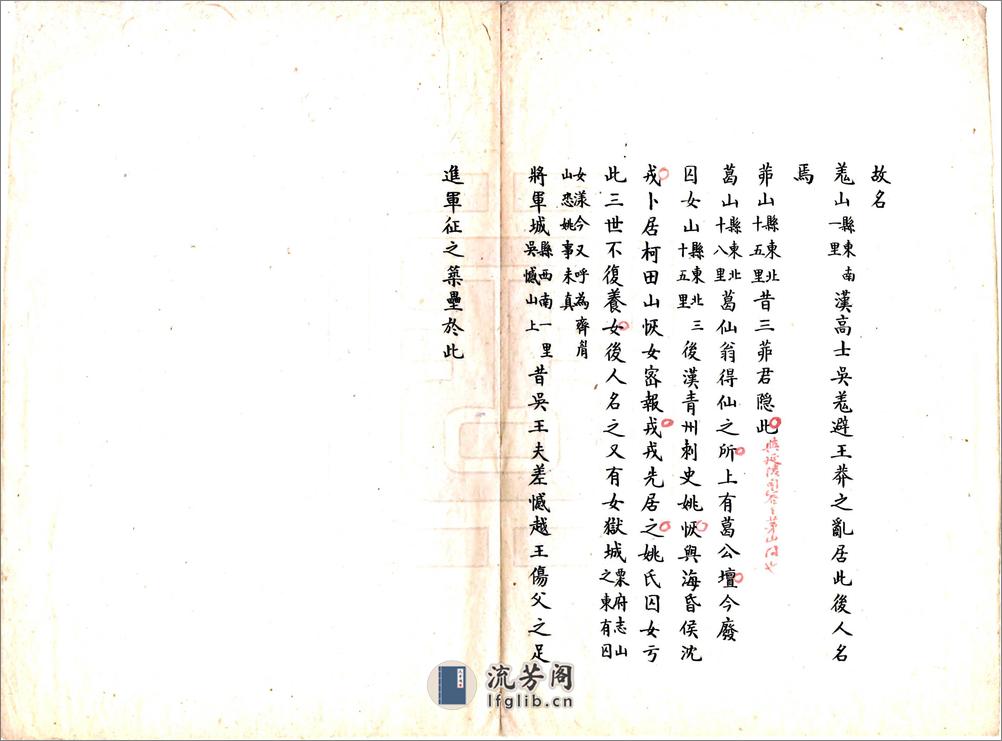 故名
羗山縣東南一里漢高士吳羗避王莽之亂居此後人名
焉
茆山縣東北十五里昔三茆君隐此
葛山縣東北十八里葛仙翁得仙之所上有葛公壇今廢
囚女山縣東北三十五里後漢青州刺史姚恢與海昏侯沈
戎卜居柯田山恢女密報戎戎先居之姚氏囚女亏
此三世不復養女後人名之又有女獄城栗府志山之東有囚
女漾今又呼為齊眉山恐姚事未真
將軍城縣西南一里吳憾山上昔吳王夫差憾越王傷父之足
進軍征之築壘於此
流芳阁
lfglib.cn